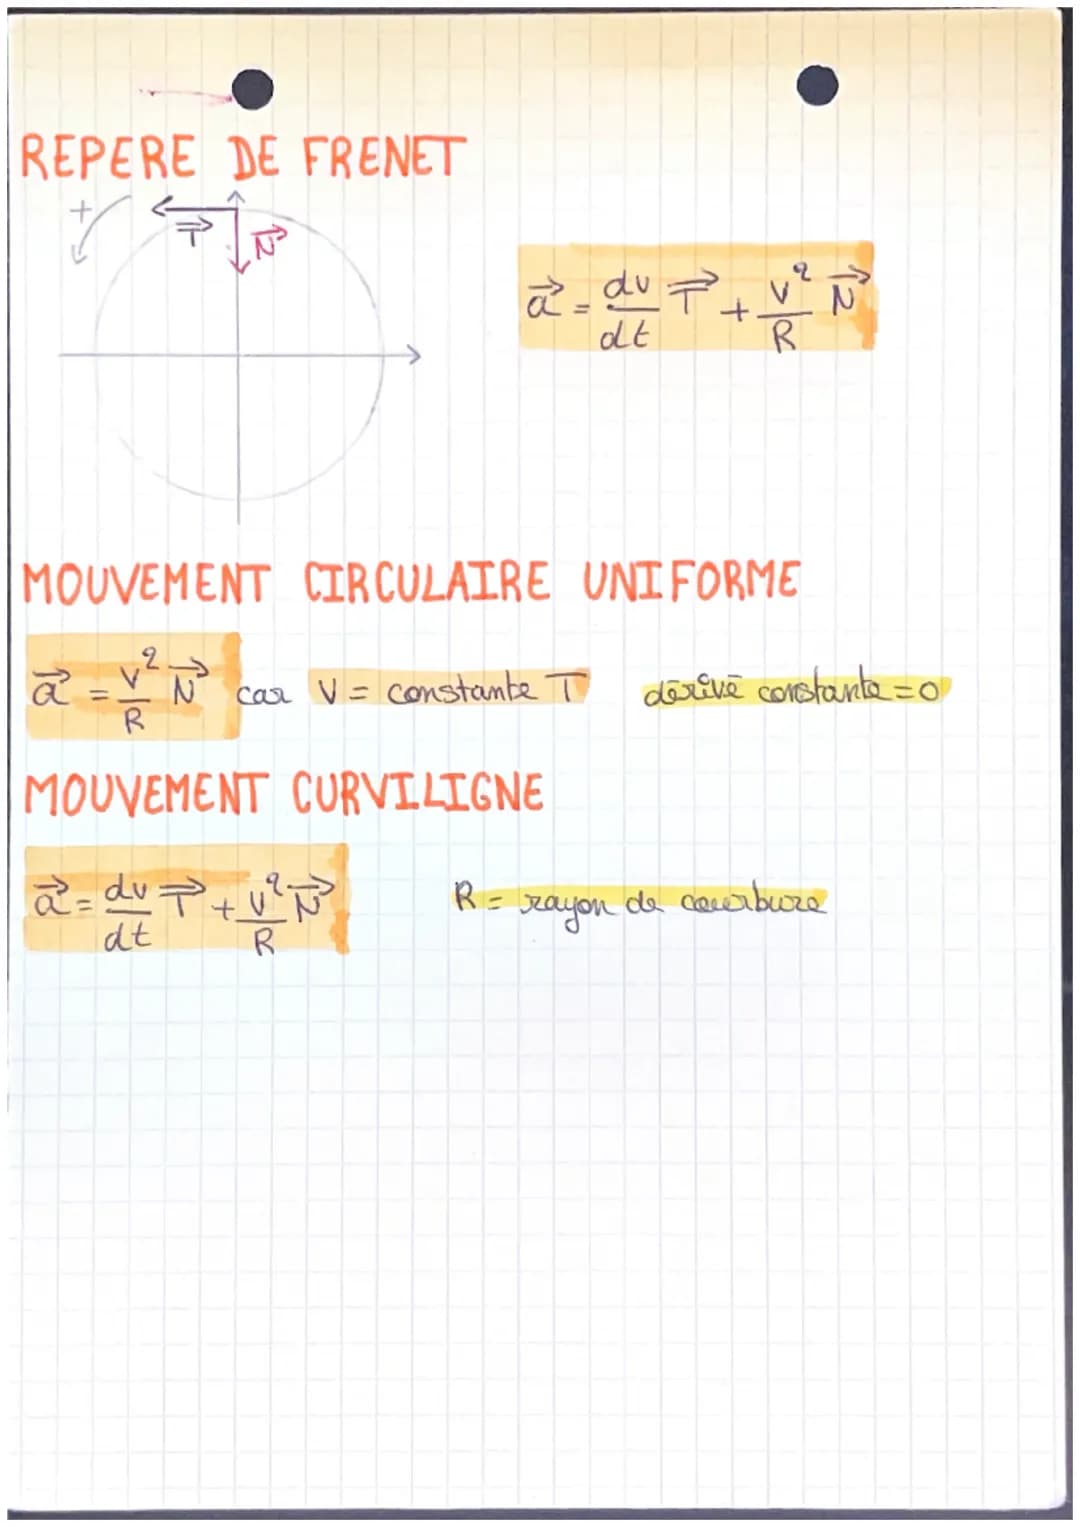 REPERE DE FRENET
+
T⃗
N⃗
a⃗ = dv/dt T⃗ + v²/R N⃗
MOUVEMENT CIRCULAIRE UNIFORME
a⃗ = v²/R N⃗ car V = constante T dérivé constante = 0
MOUVEMENT CURVILIGNE
a⃗ = dv/dt T⃗ + v²/R N⃗ R = rayon de courbure